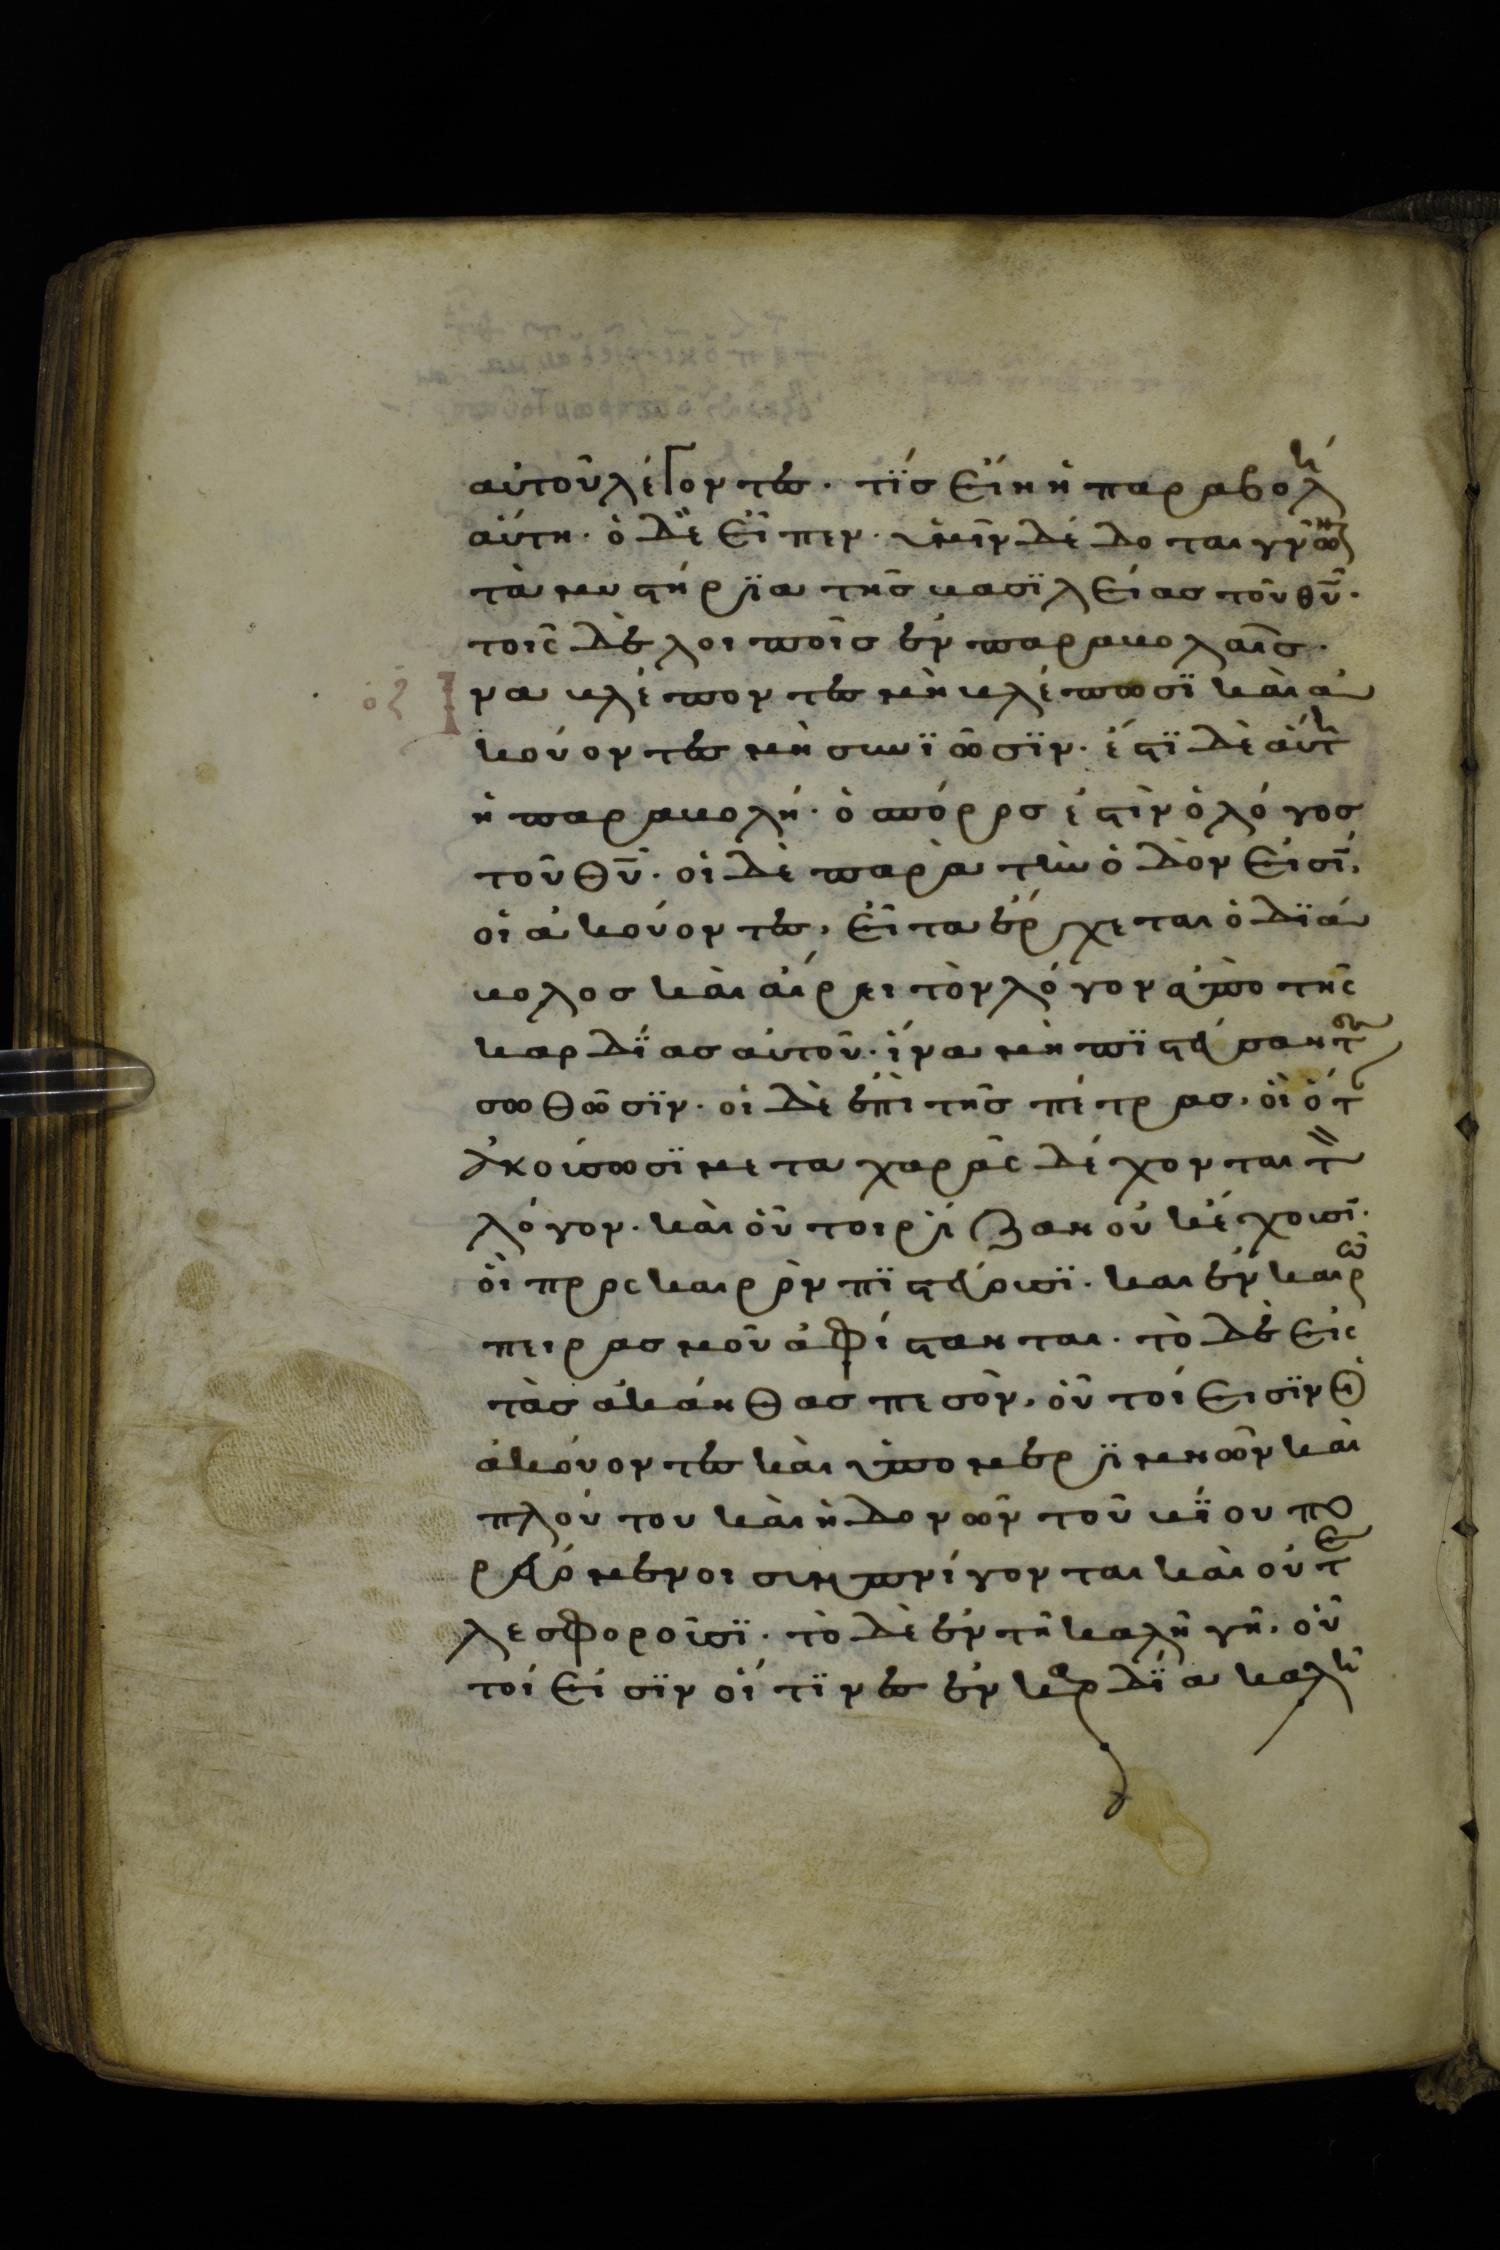 αὐτοῦ λέγοντες· τίς εἴη ἡ παραβολὴ
αὕτη· ὁ δὲ εἶπεν· ὑμῖν δέδοται γνῶναι
τὰ μυστήρια τῆς βασιλείας τοῦ θυ̅·
τοῖς δὲ λοιποῖς ἐν παραβολαῖς·
οζ Ἵνα βλέποντες μὴ βλέπωσι καὶ ἀ
κούοντες μὴ συνιῶσιν· ἔστι δὲ αὕτη
ἡ παραβολή· ὁ σπόρος ἐστὶν ὁ λόγος
τοῦ θυ̅· οἱ δὲ παρὰ τὴν ὁδὸν εἰσὶ,
οἱ ἀκούοντες, εἶτα ἔρχεται ὁ διά
βολος καὶ αἴρει τὸν λόγον ἀπὸ τῆς
καρδίας αὐτοῦ· ἵνα μὴ πιστεύσαντες
σωθῶσιν· οἱ δὲ ἐπὶ τῆς πέτρας, οἳ ὅτ
ἀκούσωσι μετα χαρᾶς δέχονται τὸν
λόγον· καὶ οὗτοι ῥίζαν οὐκ ἔχουσι·
οἳ προς καιρὸν πιστεύουσι· και ἐν καιρῶ
πειρασμοῦ ἀφίστανται· τὸ δὲ εἰς
τὰς ἀκάνθας πεσὸν, οὗτοί εισιν οἱ
ἀκούοντες καὶ ὑπο μεριμνῶν καὶ
πλούτου καὶ ἡδονῶν τοῦ βίου πο
ρευόμενοι συμπνίγονται καὶ οὐ τε
λεσφοροῦσι· τὸ δὲ ἐν τῆ καλῆ γῆ, οὗ
τοί εἰσιν οἵτινες ἐν καρδία καλῆ